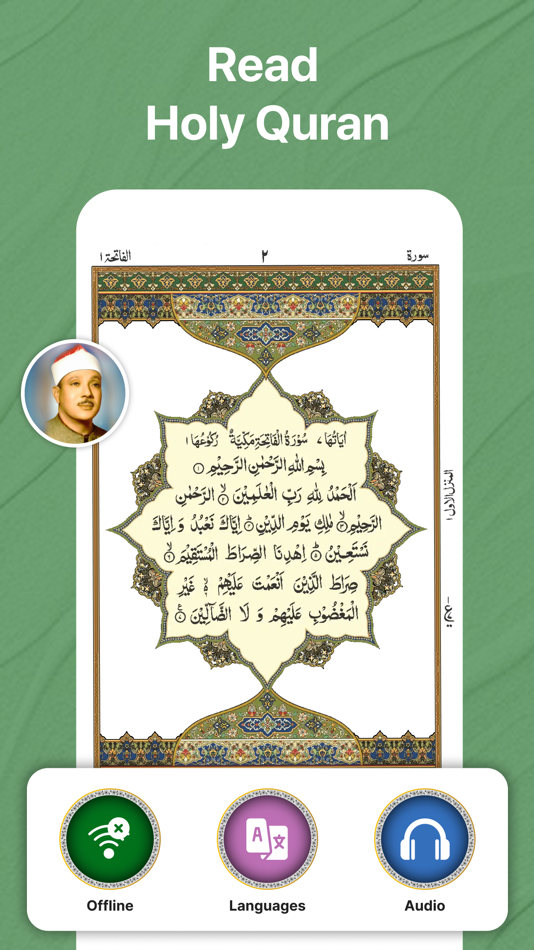 Read
Holy Quran
سورة ٢ الفاتحة ١
اٰيَاتُهَا ٧ سُوْرَةُ الْفَاتِحَةِ مَكِّيَّةٌ رُكُوْعُهَا ١
بِسْمِ اللّٰهِ الرَّحْمٰنِ الرَّحِيْمِ ١
اَلْحَمْدُ لِلّٰهِ رَبِّ الْعٰلَمِيْنَ ١ الرَّحْمٰنِ
الرَّحِيْمِ ٢ مٰلِكِ يَوْمِ الدِّيْنِ ٣ اِيَّاكَ نَعْبُدُ وَ اِيَّاكَ
نَسْتَعِيْنُ ٥ اِهْدِنَا الصِّرَاطَ الْمُسْتَقِيْمَ ٦
صِرَاطَ الَّذِيْنَ اَنْعَمْتَ عَلَيْهِمْ غَيْرِ
الْمَغْضُوْبِ عَلَيْهِمْ وَ لَا الضَّآلِّيْنَ
المنزل الاول ١
A
文
Offline
Languages
Audio